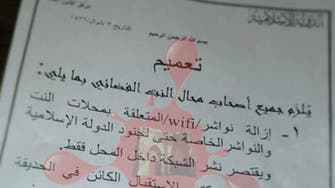 الدولة الإسلامية
بسم الله الرحمن الرحيم
تعميم
يُلزم جميع أصحاب محال النت الفضائي بما يلي:
١- إزالة نواشر/wifi/المتعلقة بمحلات النت
والنواشر الخاصة حتى لجنود الدولة الإسلامية
ويقتصر نشر الشبكة داخل المحل فقط.
الاستقبال الكائن في الحديقة